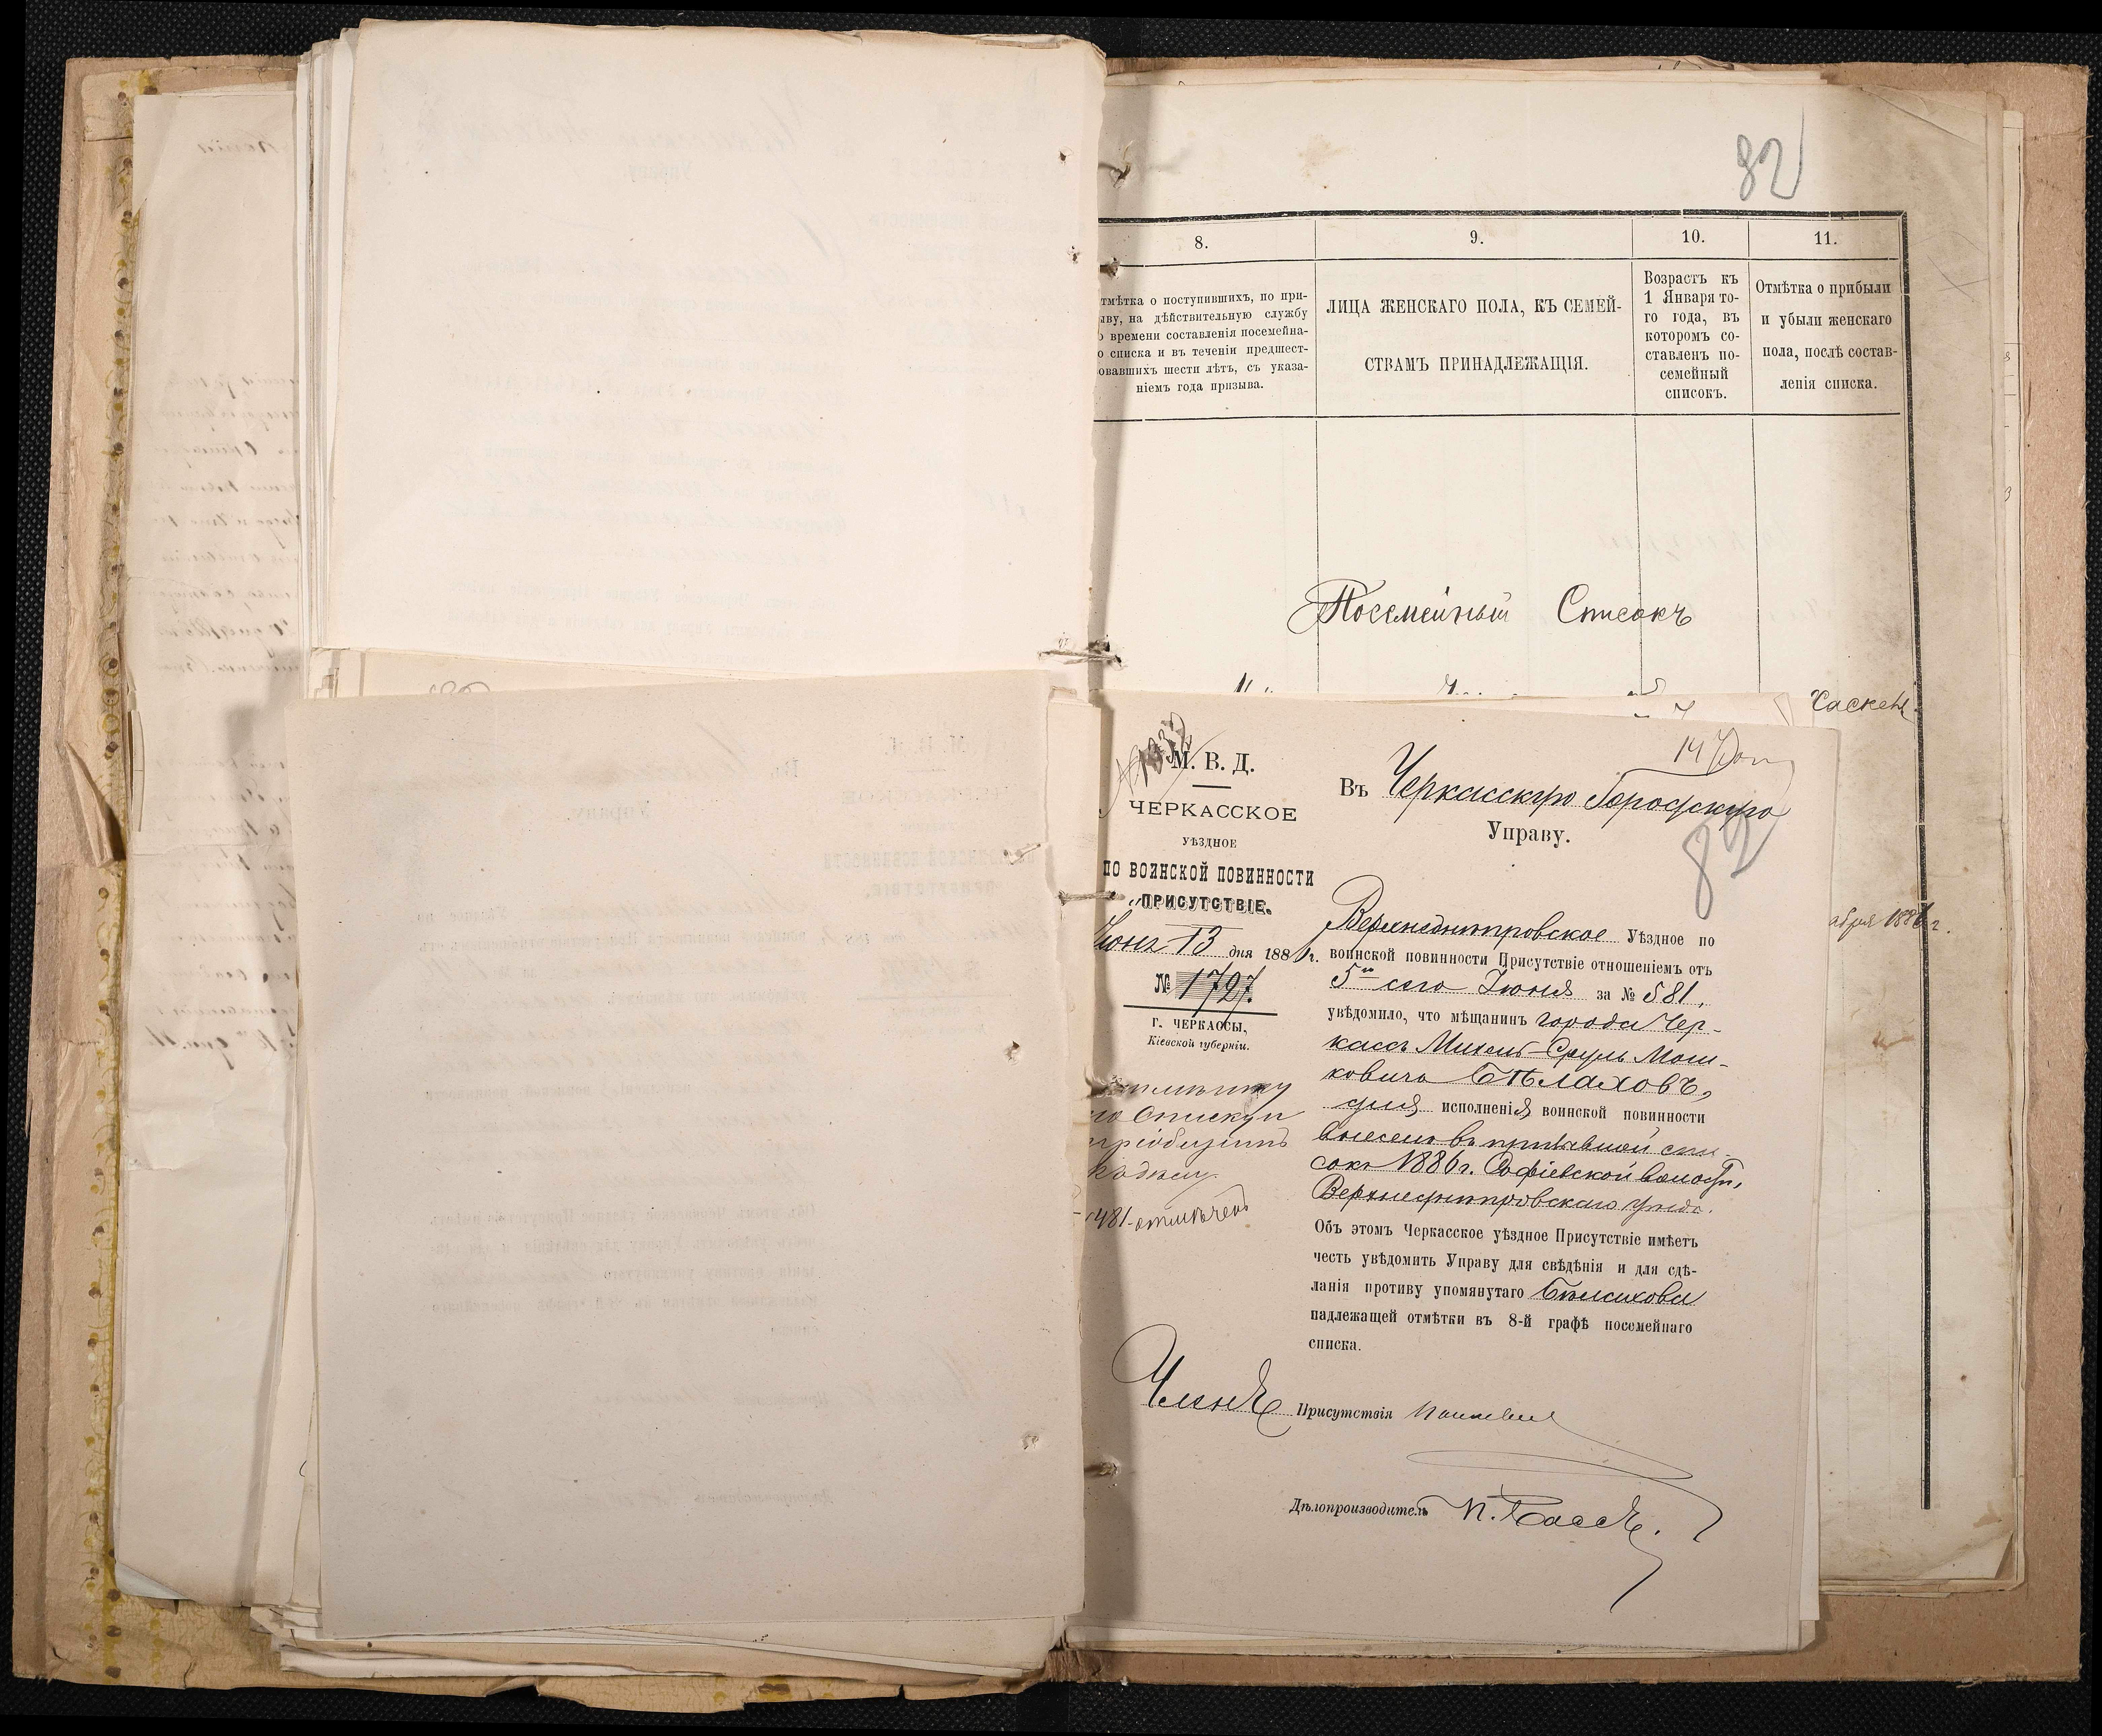 82
8.
9.
10.
11.
тмѣтка о поступившихъ, по при-
ыву, на дѣйствительную службу
о времени составленія посемейна-
о списка и въ теченіи предшест-
овавшихъ шести лѣтъ, съ указа-
ніемъ года призыва.
ЛИЦА ЖЕНСКАГО ПОЛА, КЪ СЕМЕЙ-
СТВАМЪ ПРИНАДЛЕЖАЩІЯ.
Возрастъ къ
1 Января то-
го года, въ
которомъ со-
ставленъ по-
семейный
списокъ.
Отмѣтка о прибыли
и убыли женскаго
пола, послѣ состав-
ленія списка.
Посемейный Списокъ
абря 1886 г.
М. В. Д.
ЧЕРКАССКОЕ
УѢЗДНОЕ
ПО ВОИНСКОЙ ПОВИННОСТИ
ПРИСУТСТВІЕ.
13 дня 188 г.
№ 1727.
Г. ЧЕРКАССЫ,
Кіевской губерніи.
по списку и
пріобщить
къ дѣлу
481 отмѣченъ
14
Въ Черкасскую Городскую
Управу.
82
Верхнеднѣпровское Уѣздное по
воинской повинности Присутствіе отношеніемъ отъ
5го сего Іюня за № 581,
увѣдомило, что мѣщанинъ города Чер-
кассъ Михель-Сруль Мош-
ковичъ Бѣлаховъ,
для исполненія воинской повинности
внесенъ въ призывной спи-
сокъ 1886 г. Софіевской волости,
Верхнеднѣпровскаго уѣзда.
Объ этомъ Черкасское уѣздное Присутствіе имѣетъ
честь увѣдомить Управу для свѣдѣнія и для сдѣ-
ланія противу упомянутаго Бѣлахова
надлежащей отмѣтки въ 8-й графѣ посемейнаго
списка.
Членъ Присутствія
Дѣлопроизводитель П. Бассъ.